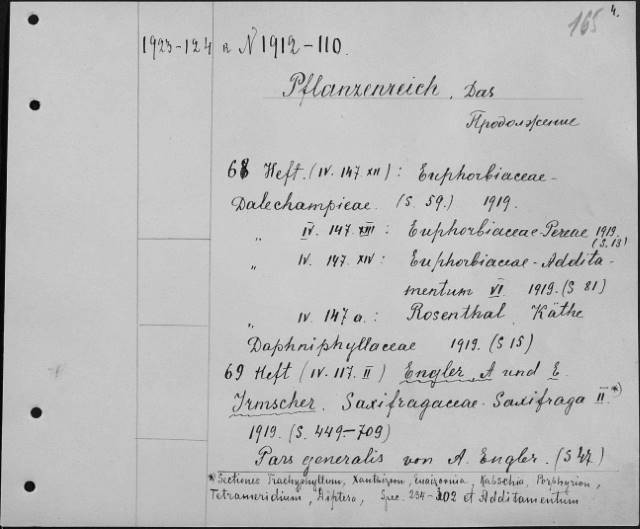 165 4.
1923-124 а N 1912-110.
Pflanzenreich, Das
Продолжение
68 Heft. (IV. 147. XII) : Euphorbiaceae-
Dalechampieae. (S. 59.) 1919.
„ IV. 147. XIII : Euphorbiaceae-Pereae 1919.
(S. 13)
„ IV. 147. XIV : Euphorbiaceae-Addita-
mentum VI 1919. (S 81)
„ IV. 147 a. : Rosenthal, Käthe
Daphniphyllaceae 1919. (S 15)
69 Heft (IV. 117. II) Engler, A und E.
Irmscher. Saxifragaceae-Saxifraga II.*)
1919. (S. 449-709)
Pars generalis von A. Engler. (S 47)
*) Sectiones Trachyphyllum, Xanthizoon, Euaizoonia, Kabschia, Porphyrion,
Tetrameridium, Diptera, Spec. 234-302 et Additamentum